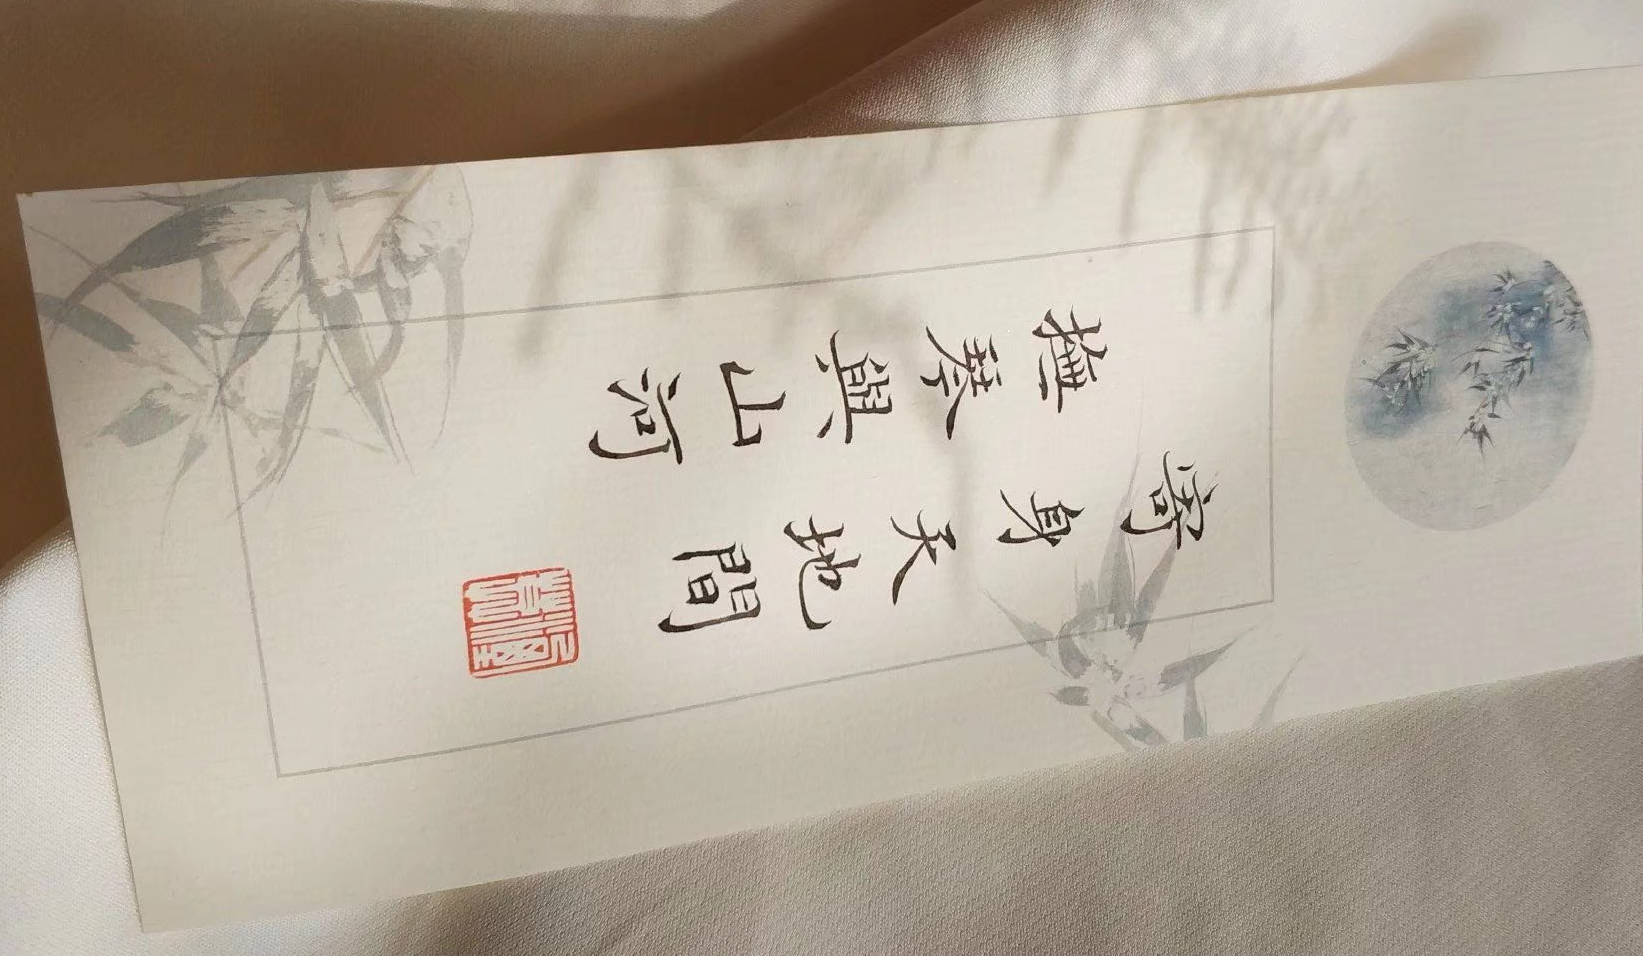 寄身天地間
撫琴與山河